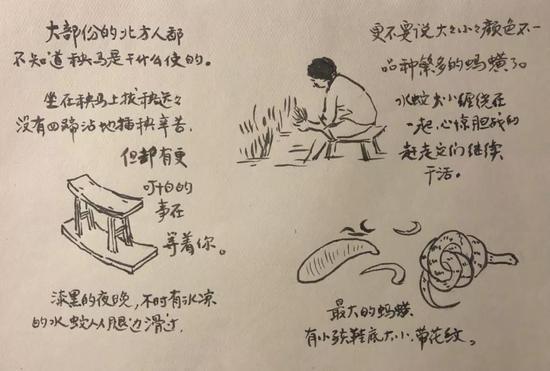 大部份的北方人都
不知道秧马是干什么使的。
坐在秧马上拔秧远々
没有四蹄沾地插秧辛苦.
但却有更
可怕的
事在
等着你。
漆黑的夜晚,不时有冰凉
的水蛇从腿边滑过.
更不要说大々小々颜色不一
品种繁多的蚂蟥了。
水蛇大小缠绕在
一起,心惊胆战的
赶走它们继续
干活。
最大的蚂蟥
有小孩鞋底大小.带花纹。